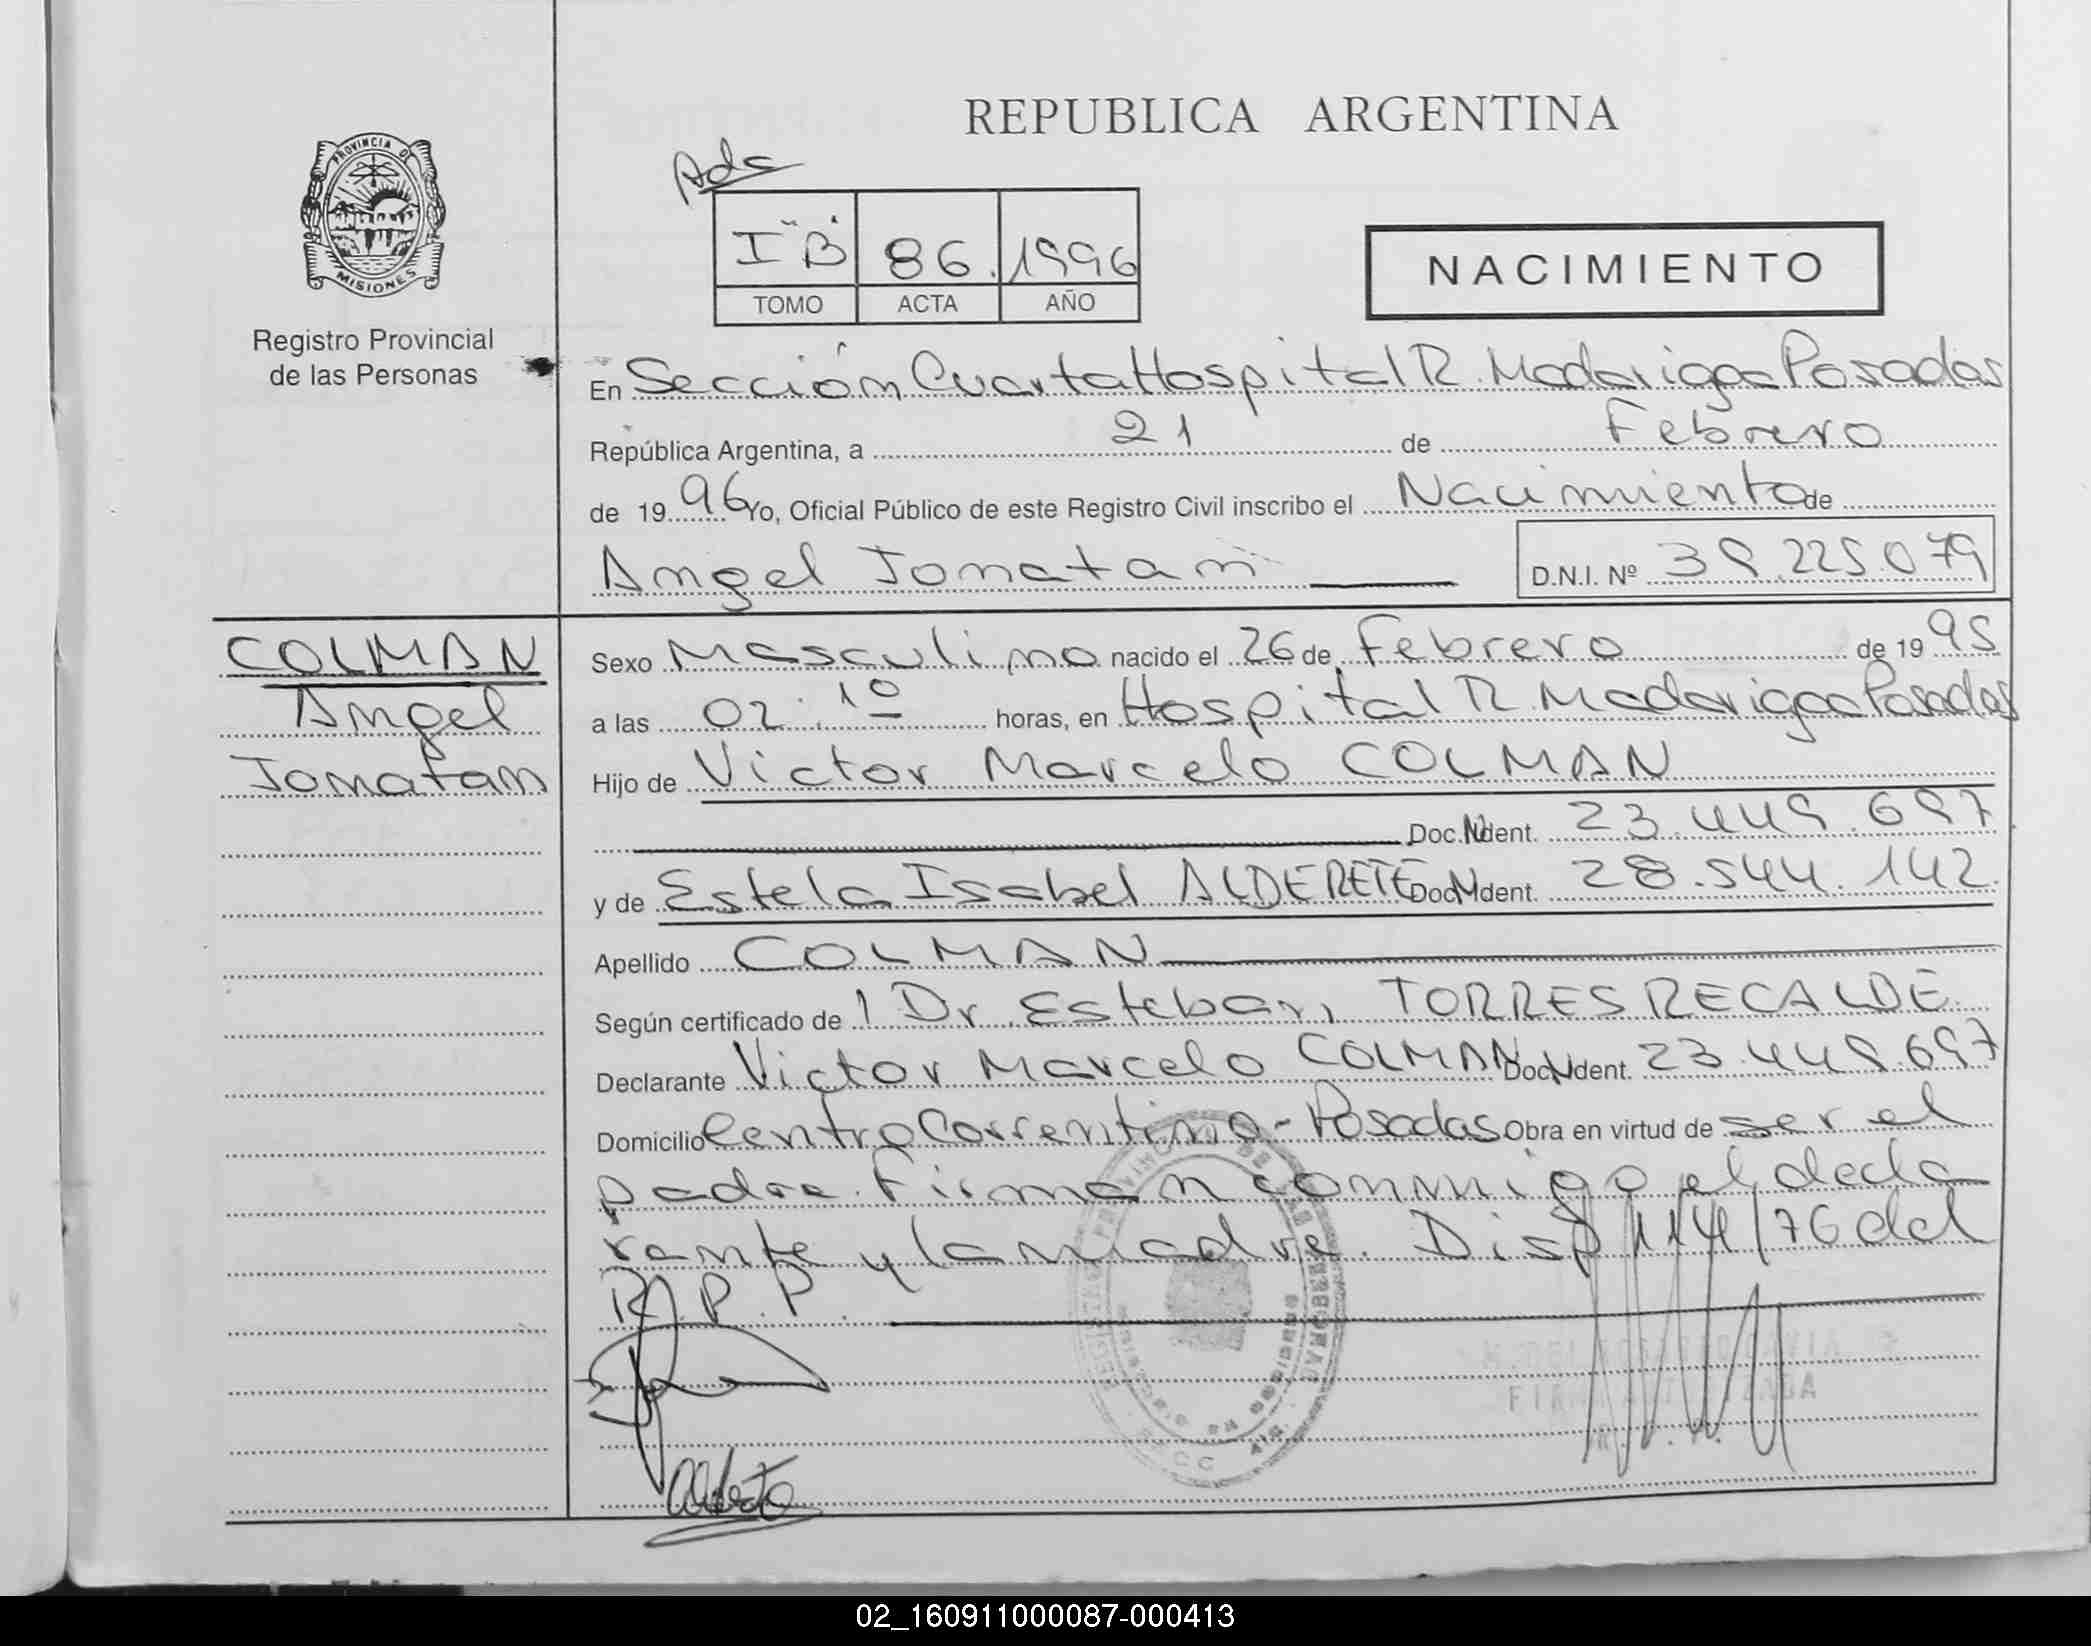 REPUBLICA ARGENTINA
PROVINCIA DE
MISIONES
Registro Provincial
de las Personas
Ada
I "B" 86. 1996
TOMO ACTA AÑO
NACIMIENTO
En Sección Cuarta Hospital R. Madariaga Posadas
República Argentina, a 21 de Febrero
de 1996 Yo, Oficial Público de este Registro Civil inscribo el Nacimiento de
Angel Jonatan
D.N.I. Nº 39.225.079
COLMAN
Angel
Jonatan
Sexo Masculino nacido el 26 de Febrero de 1995
a las 02:10 horas, en Hospital R. Madariaga Posadas
Hijo de Victor Marcelo COLMAN
Doc. N Ident. 23.449.697
y de Estela Isabel ALDERETE Doc. N Ident. 28.544.142
Apellido COLMAN
Según certificado de 1 Dr. Esteban TORRES RECALDE
Declarante Victor Marcelo COLMAN Doc. N Ident. 23.449.697
Domicilio Centro Correntino - Posadas Obra en virtud de ser el
padre. Firman conmigo el decla
rante y la madre. Disp 114/76 del
R.P.P.
02_160911000087-000413